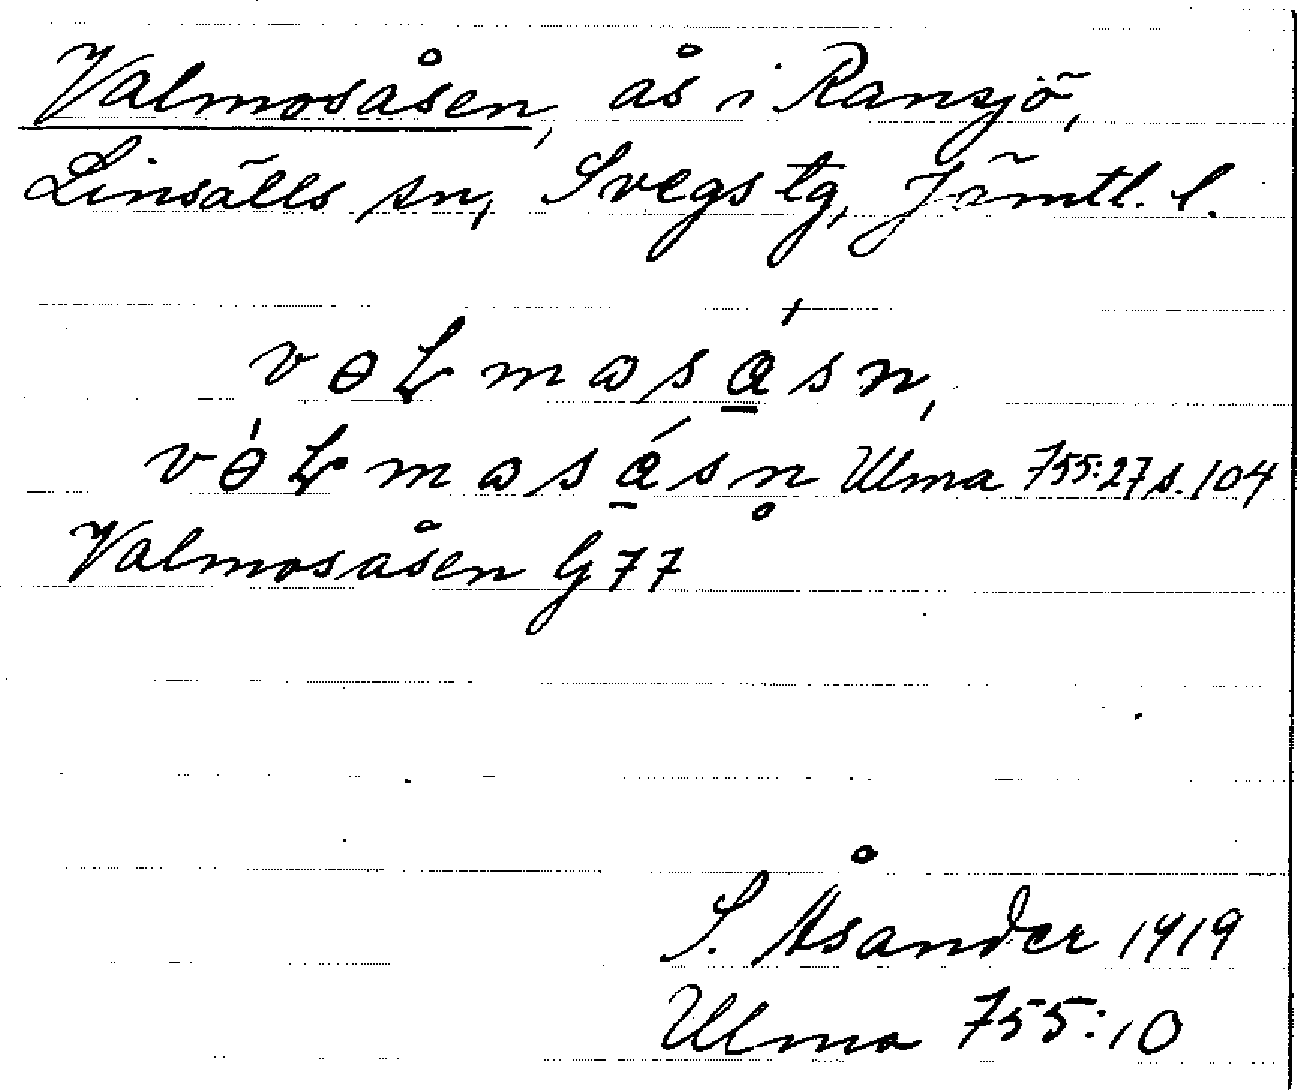 Valmosåsen, ås i Ransjö,
Linsälls sn, Svegs tg, Jämtl. l.
vɵⱢmɷsá̱sn,
vɵ́Ɫmɷsá̱sn̥ Ulma 755:27 s. 104
Valmosåsen G 77
S. Åsander 1919
Ulma 755:10